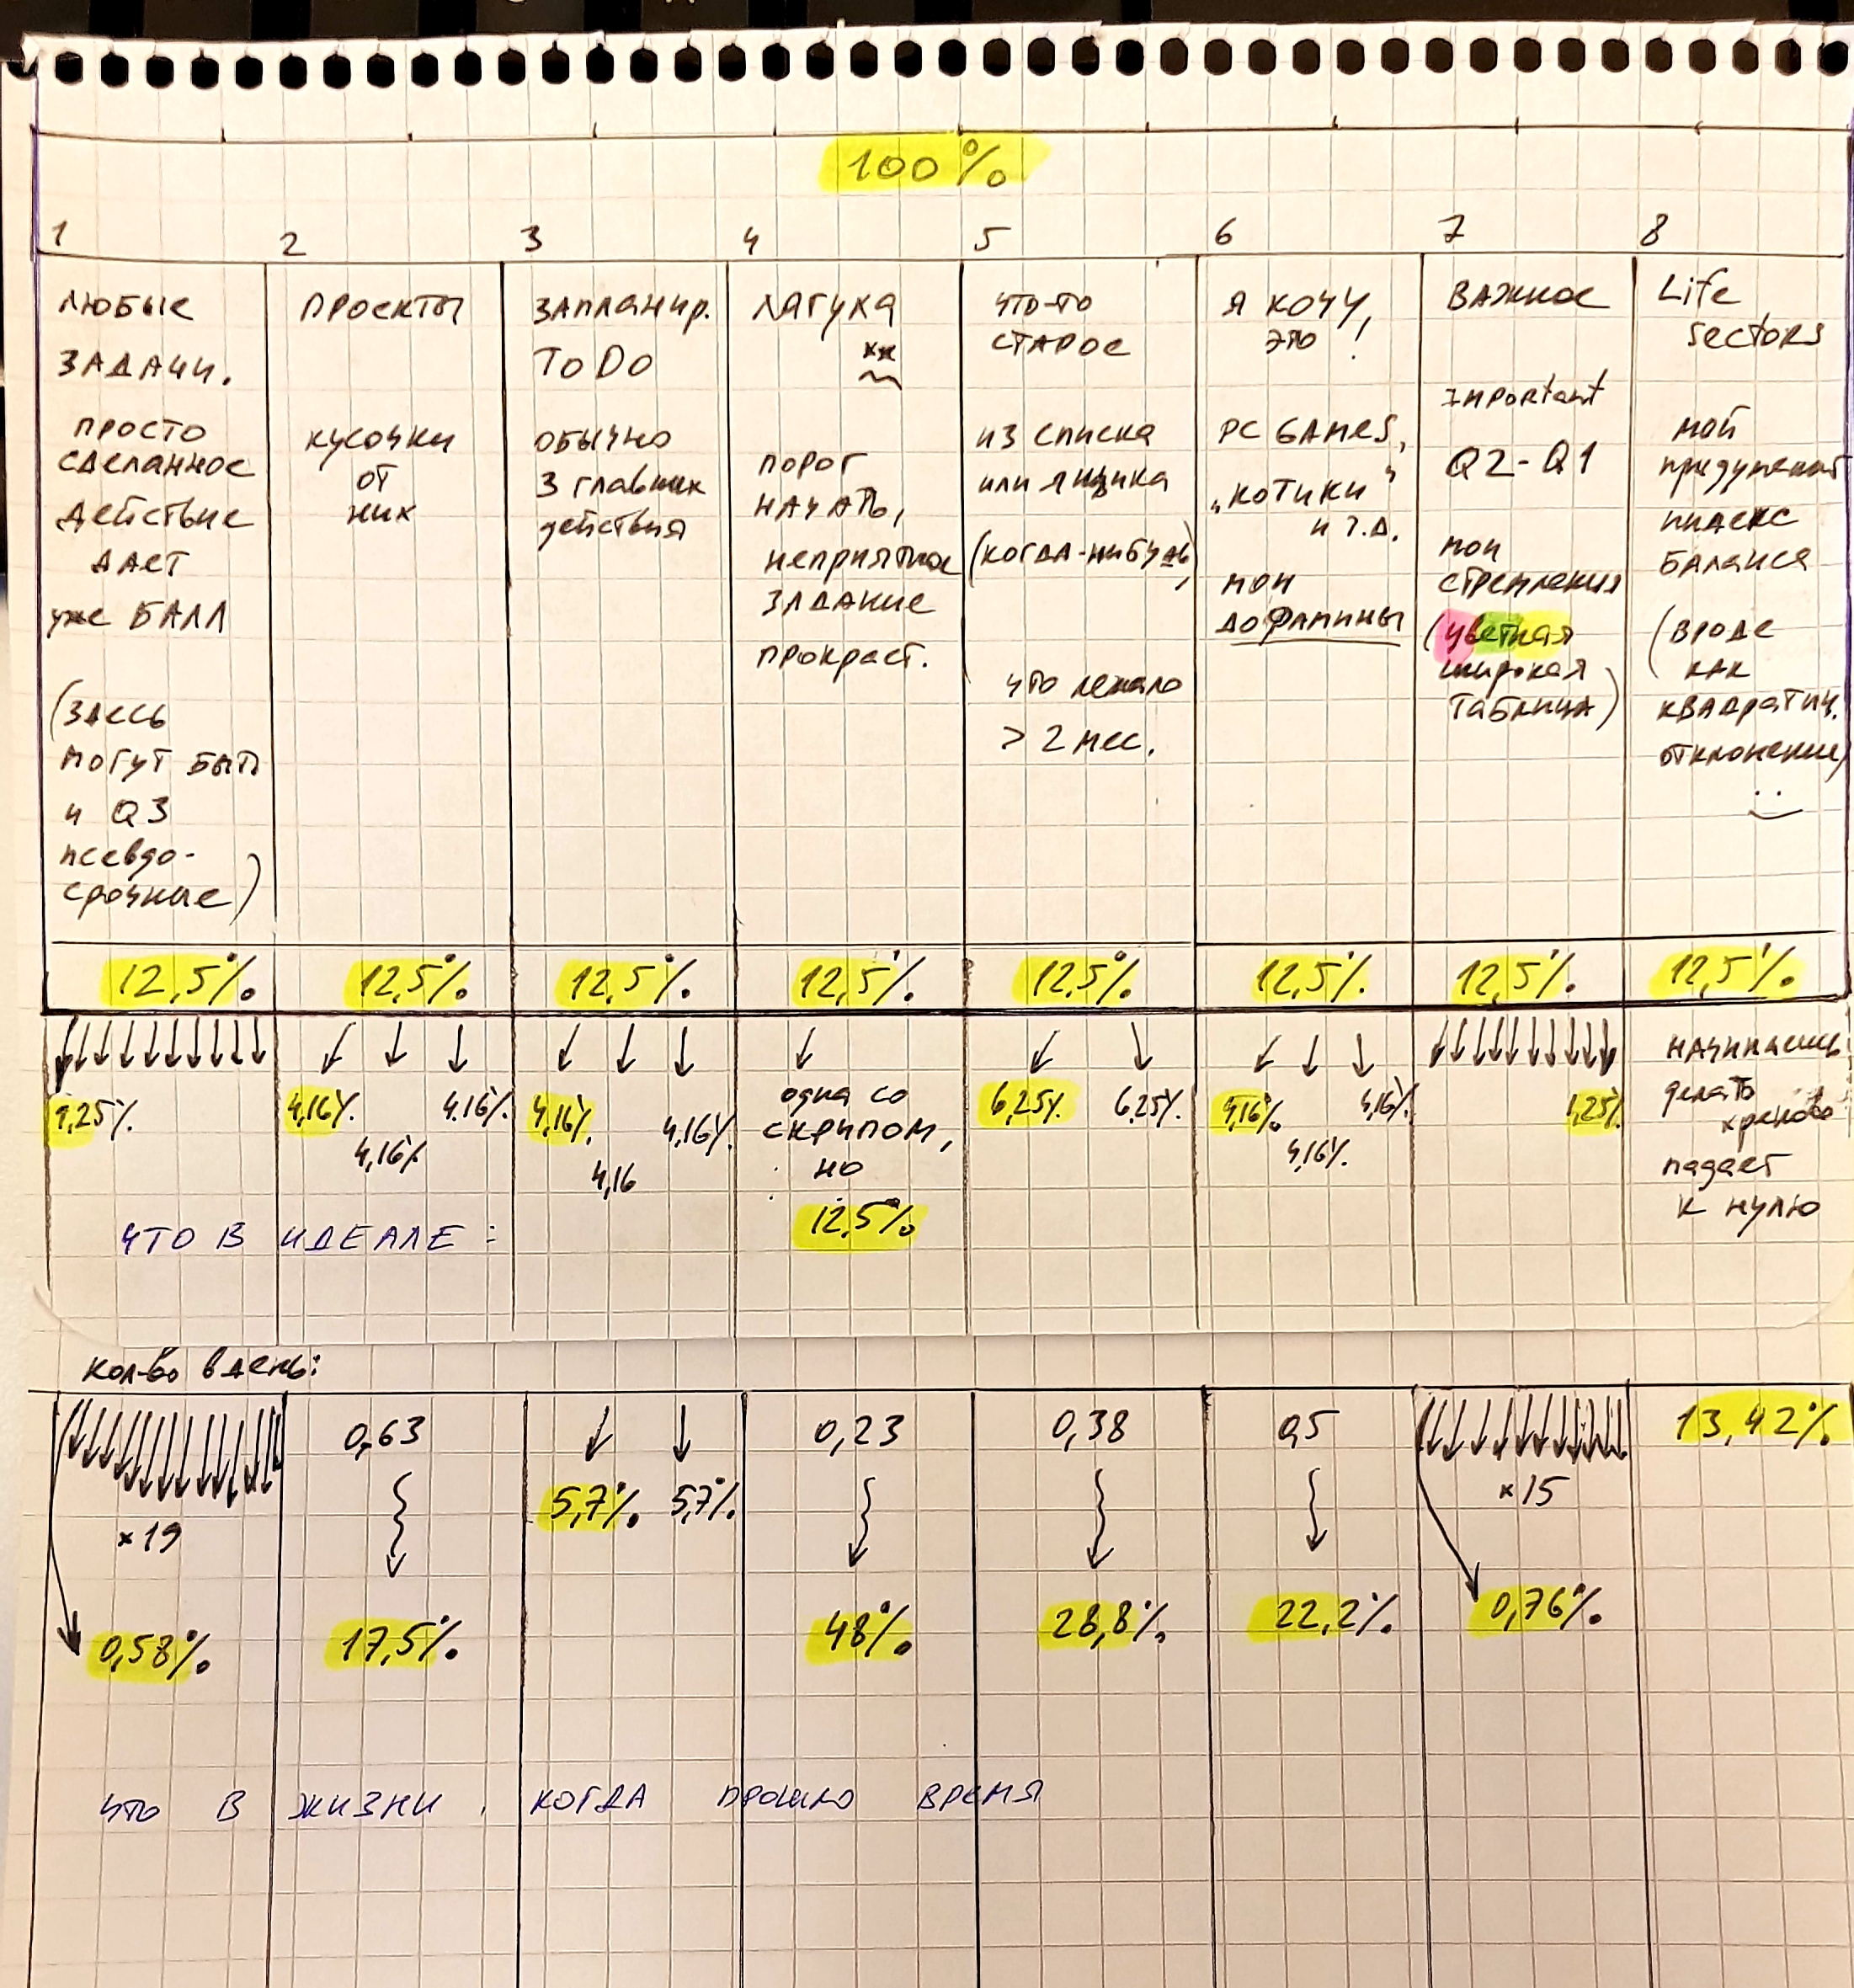 100%
1 2 3 4 5 6 7 8
ЛЮБЫЕ
ЗАДАЧИ.
ПРОСТО
СДЕЛАННОЕ
ДЕЙСТВИЕ
ДАЕТ
уже БАЛЛ
(ЗДЕСЬ
МОГУТ БЫТЬ
и Q3
псевдо-
срочные)
ПРОЕКТЫ
кусочки
от
них
ЗАПЛАНИР.
ToDo
ОБЫЧНО
3 главных
действия
ЛЯГУХА
ПОРОГ
НАЧАТЬ,
НЕПРИЯТНОЕ
ЗАДАНИЕ
ПРОКРАСТ.
ЧТО-ТО
СТАРОЕ
ИЗ СПИСКА
или ящика
(КОГДА-НИБУДЬ)
ЧТО лежало
> 2 МЕС.
Я ХОЧУ,
ЭТО!
PC GAMES,
„КОТИКИ"
и т.д.
МОИ
ДОФАМИНЫ
ВАЖНОЕ
Important
Q2-Q1
МОИ
СТРЕМЛЕНИЯ
(цветная
широкая
ТАБЛИЦА)
Life
sectors
МОЙ
индекс
БАЛАНСА
(ВРОДЕ
КАК
КВАДРАТИЧ.
отклонение)
12,5% 12,5% 12,5% 12,5% 12,5% 12,5% 12,5% 12,5%
1,25%
4,16% 4,16% 4,16%
4,16% 4,16 4,16%
одна со
СКРИПОМ,
НО
12,5%
6,25% 6,25%
4,16% 4,16% 4,16%
1,25%
начинаешь
делать
хреново
падает
к нулю
ЧТО В ИДЕАЛЕ:
КОЛ-ВО В ДЕНЬ:
×19
0,58%
0,63
17,5%
5,7% 5,7%
0,23
48%
0,38
28,8%
0,5
22,2%
×15
0,76%
13,42%
ЧТО В ЖИЗНИ, КОГДА ПРОШЛО ВРЕМЯ